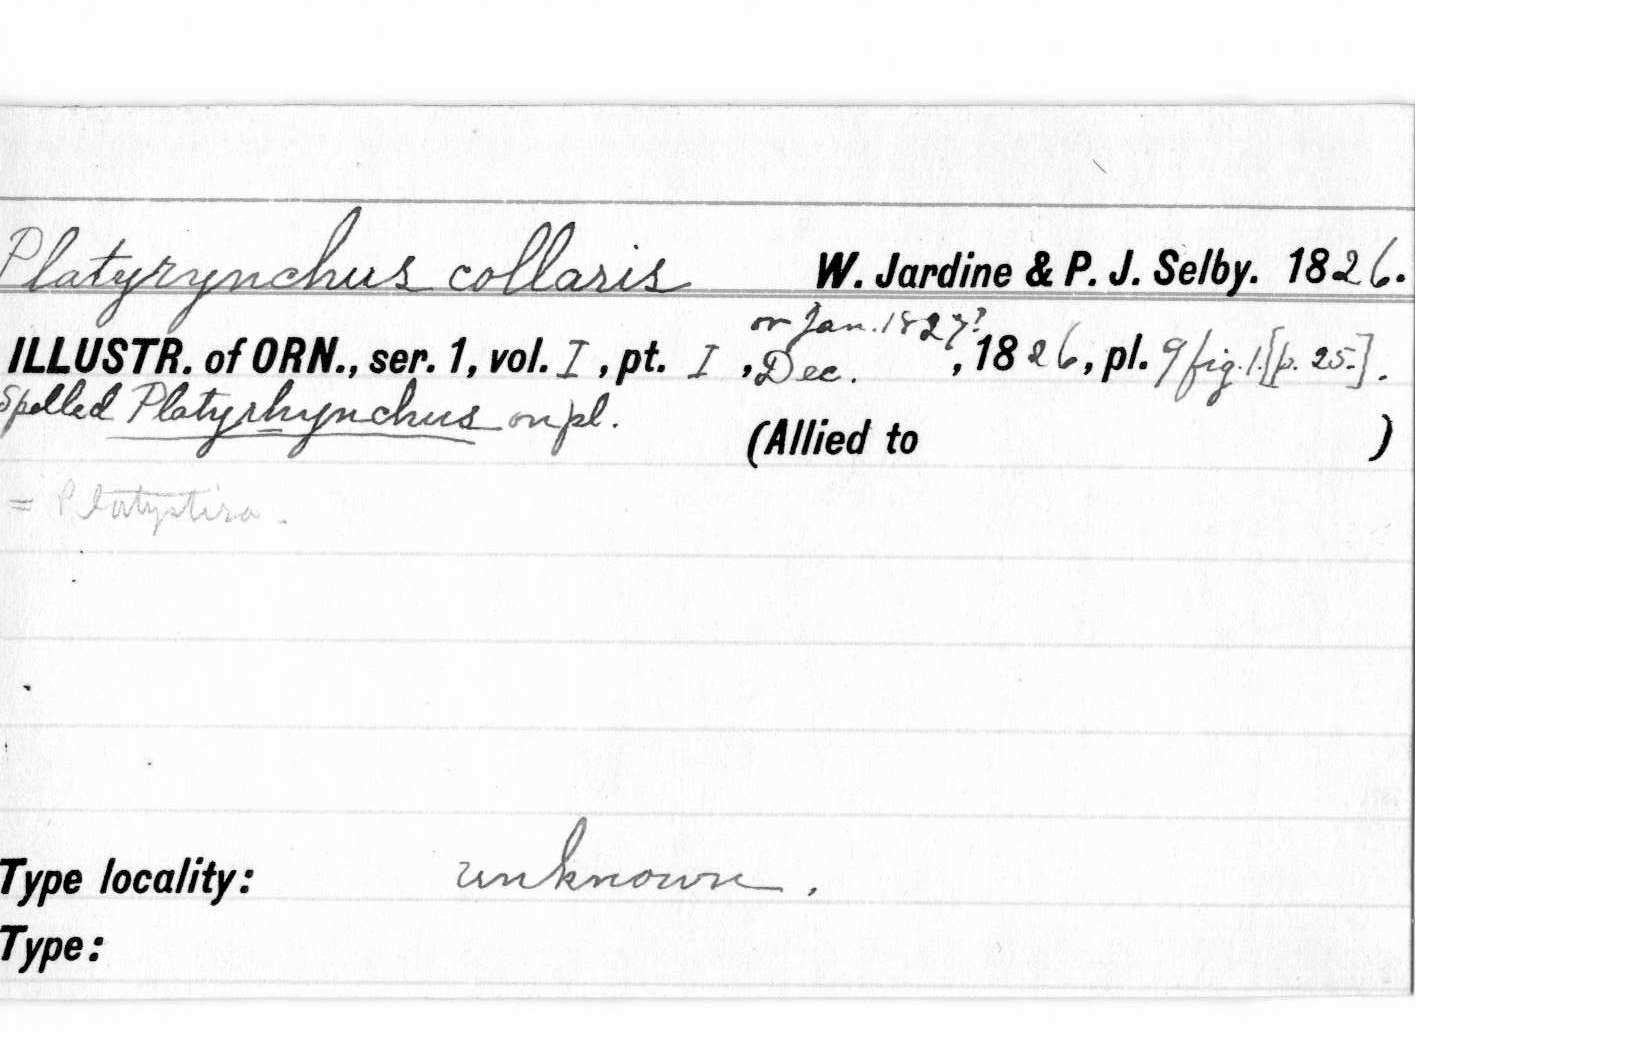 Platyrynchus collaris W. Jardine & P. J. Selby. 1826.
or Jan. 1827?
ILLUSTR. of ORN., ser. 1, vol. I, pt. I, Dec., 1826, pl. 9 fig. 1. [p. 25.].
Spelled Platyrhynchus on pl.
(Allied to )
= Platystira.
Type locality: unknown.
Type: